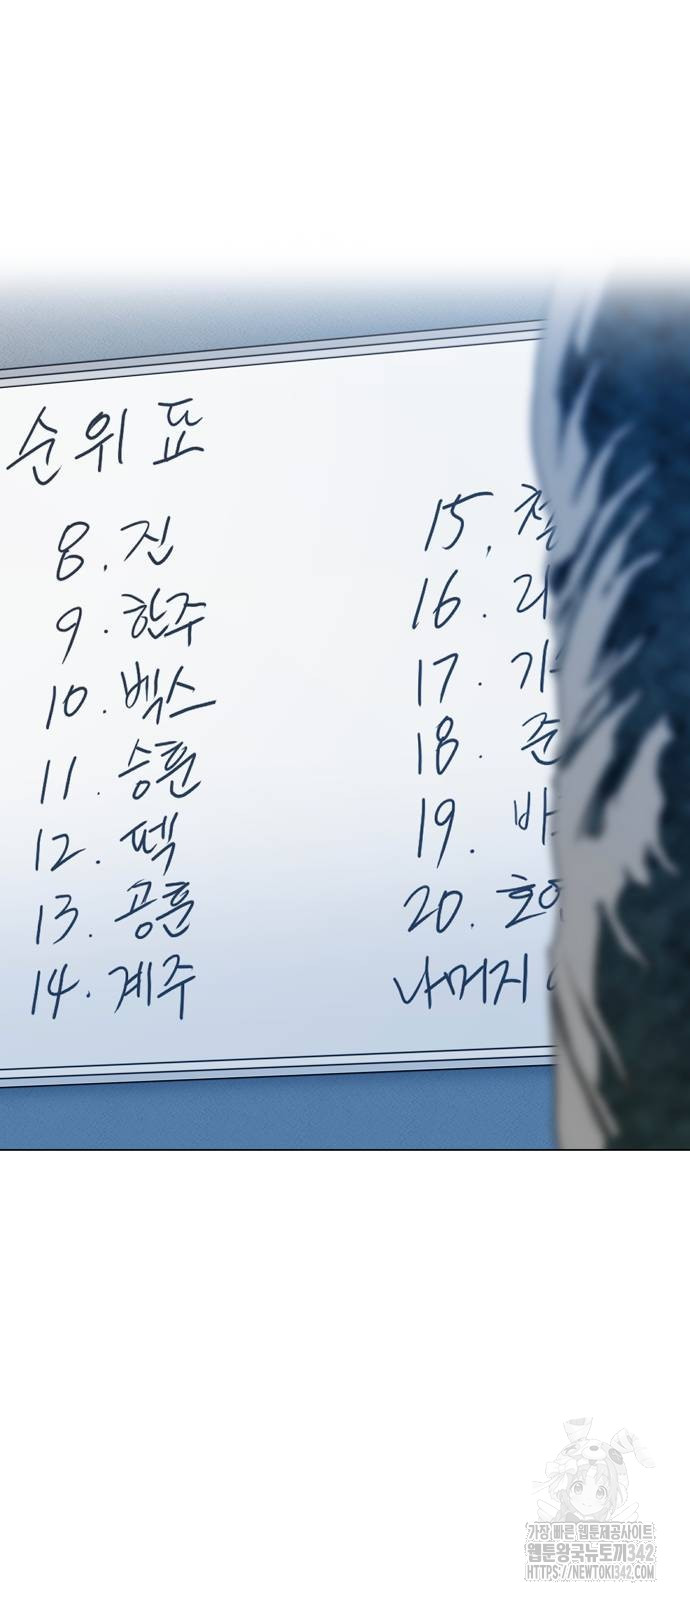 순위표
8. 진
9. 한주
10. 벡스
11. 승훈
12. 떽
13. 공훈
14. 계주
15.
16.
17.
18.
19.
20.
나머지
가장 빠른 웹툰제공사이트
웹툰왕국뉴토끼342
HTTPS://NEWTOKI342.COM